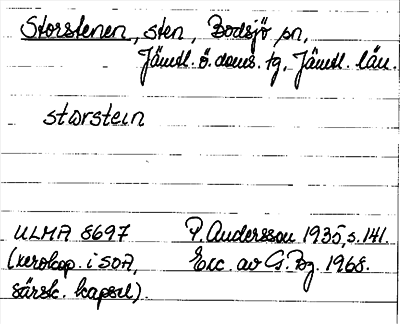 Storstenen, sten, Bodsjö sn,
Jämtl. ö. doms. tg, Jämtl. län.
storstein
ULMA 8697 P. Andersson 1935, s. 141.
(xerokop. i SOA, Exc. av G. Bg. 1968.
särsk. kapsel).